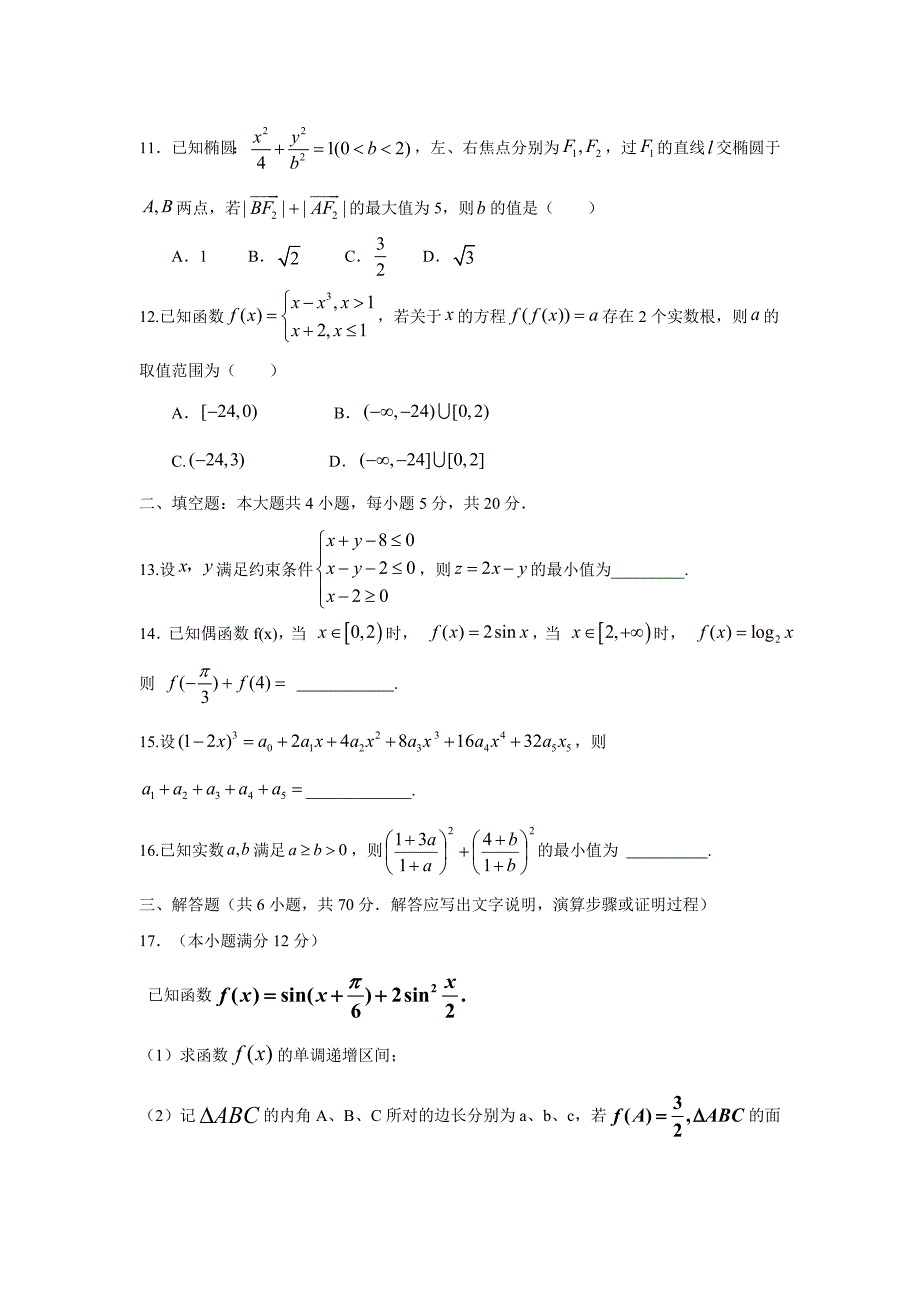 11．已知椭圆：$\frac{x^2}{4}+\frac{y^2}{b^2}=1(0<b<2)$，左、右焦点分别为$F_1,F_2$，过$F_1$的直线$l$交椭圆于
$A,B$两点，若$|\overrightarrow{BF_2}|+|\overrightarrow{AF_2}|$的最大值为5，则$b$的值是（　　）
A．1　B．$\sqrt{2}$　C．$\frac{3}{2}$　D．$\sqrt{3}$
12.已知函数$f(x)=\begin{cases}x-x^3,x>1\\x+2,x\leq1\end{cases}$，若关于$x$的方程$f(f(x))=a$存在2个实数根，则$a$的
取值范围为（　　）
A．$[-24,0)$　B．$(-\infty,-24)\bigcup[0,2)$
C.$(-24,3)$　D．$(-\infty,-24]\bigcup[0,2]$
二、填空题：本大题共4小题，每小题5分，共20分．
13.设$x，y$满足约束条件$\begin{cases}x+y-8\leq0\\x-y-2\leq0\\x-2\geq0\end{cases}$，则$z=2x-y$的最小值为_________.
14．已知偶函数f(x)，当 $x\in[0,2)$时， $f(x)=2\sin x$，当 $x\in[2,+\infty)$时， $f(x)=\log_2 x$
则 $f(-\frac{\pi}{3})+f(4)=$ ____________.
15.设$(1-2x)^3=a_0+2a_1x+4a_2x^2+8a_3x^3+16a_4x^4+32a_5x_5$，则
$a_1+a_2+a_3+a_4+a_5=$_____________.
16.已知实数$a,b$满足$a\geq b>0$，则$\left(\frac{1+3a}{1+a}\right)^2+\left(\frac{4+b}{1+b}\right)^2$的最小值为 __________.
三、解答题（共6小题，共70分．解答应写出文字说明，演算步骤或证明过程）
17．（本小题满分12分）
已知函数$f(x)=\sin(x+\frac{\pi}{6})+2\sin^2\frac{x}{2}.$
（1）求函数$f(x)$的单调递增区间；
（2）记$\Delta ABC$的内角A、B、C所对的边长分别为a、b、c，若$f(A)=\frac{3}{2},\Delta ABC$的面